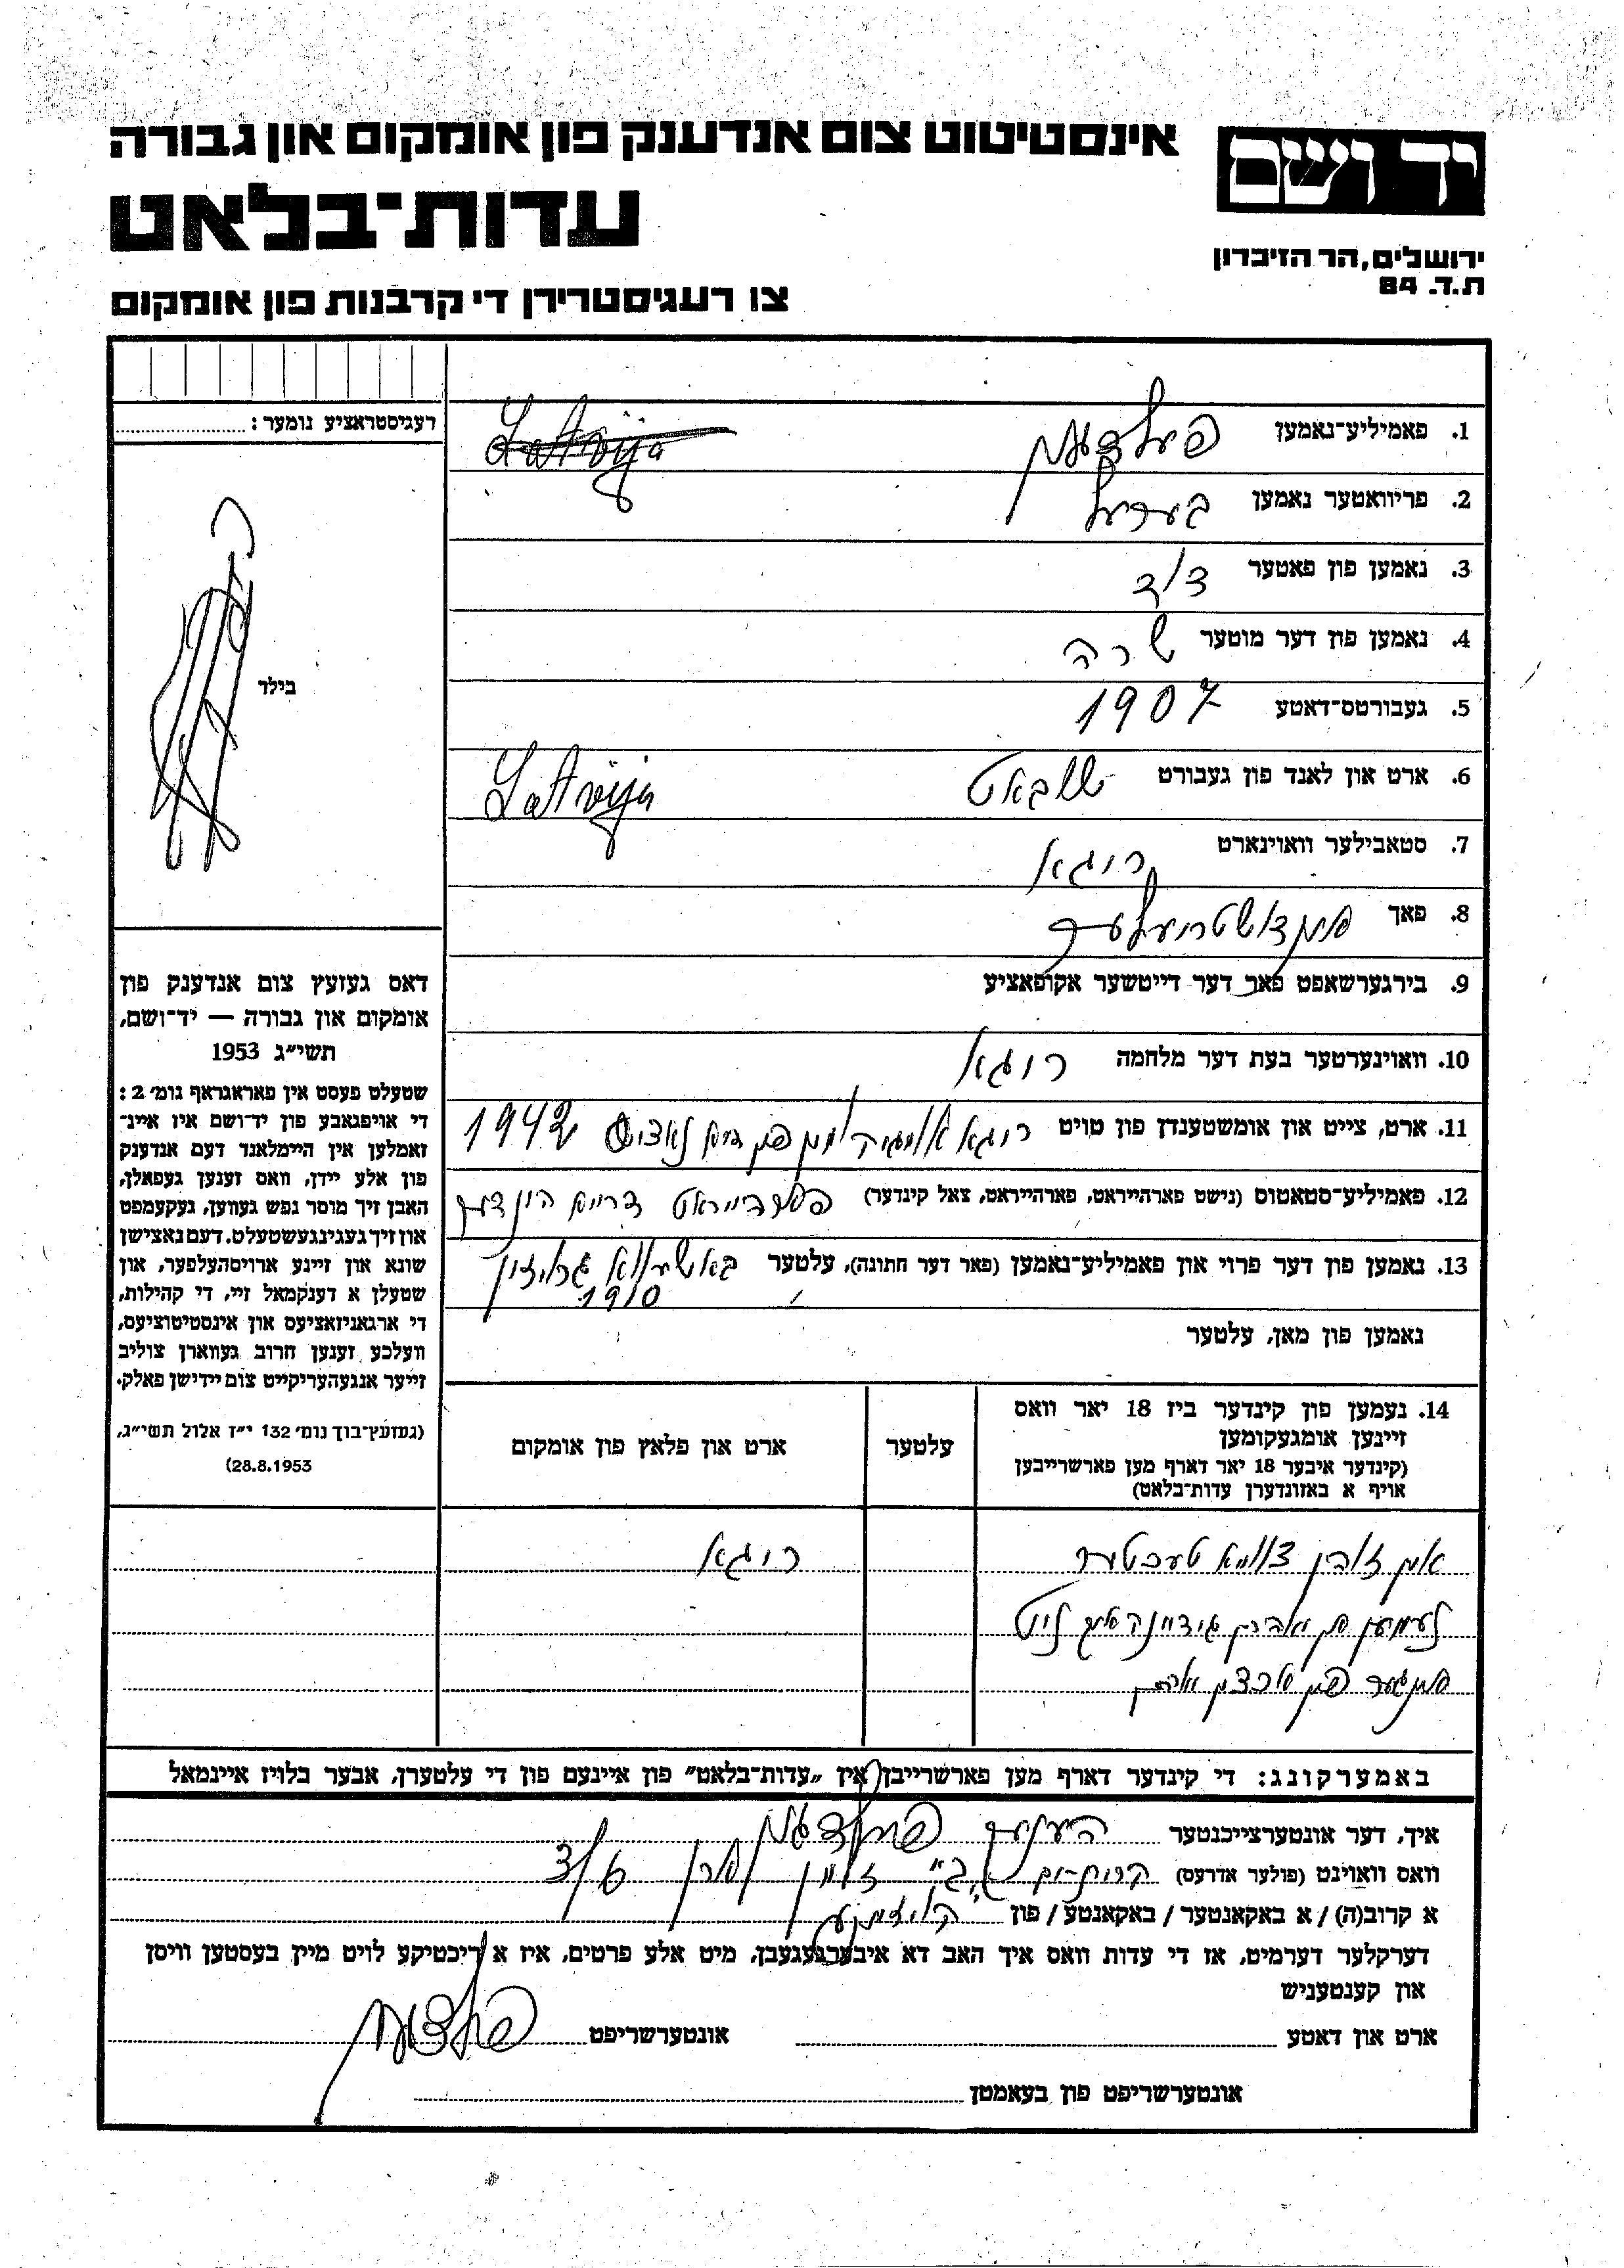 אינסטיטוט צום אנדענק פון אומקום און גבורה
יד ושם
עדות־בלאט
ירושלים, הר הזיכרון
ת.ד. 84
צו רעגיסטרירן די קרבנות פון אומקום
רעגיסטראציע נומער:
בילד
1. פאמיליע־נאמען פעלדמאן Latvija
2. פריוואטער נאמען בערעל
3. נאמען פון פאטער דוד
4. נאמען פון דער מוטער שרה
5. געבורטס־דאטע 1907
6. ארט און לאנד פון געבורט Latvija
7. סטאבילער וואוינארט ריגא
8. פאך
9. בירגערשאפט פאר דער דייטשער אקופאציע
10. וואוינערטער בעת דער מלחמה ריגא
11. ארט, צייט און אומשטענדן פון טויט ריגא 1942
12. פאמיליע־סטאטוס (נישט פארהייראט, פארהייראט, צאל קינדער) פארהייראט דרייא קינדער
13. נאמען פון דער פרוי און פאמיליע־נאמען (פאר דער חתונה), עלטער
1910
נאמען פון מאן, עלטער
14. נעמען פון קינדער ביז 18 יאר וואס
זיינען אומגעקומען
(קינדער איבער 18 יאר דארף מען פארשרייבן
אויף א באזונדערן עדות־בלאט)
עלטער
ארט און פלאץ פון אומקום
אין זוהן צווייא טעכטער ריגא
דאס געזעץ צום אנדענק פון
אומקום און גבורה — יד־ושם,
תשי״ג 1953
שטעלט פעסט אין פאראגראף נומ׳ 2:
די אויפגאבע פון יד־ושם איז איינ־
זאמלען אין היימלאנד דעם אנדענק
פון אלע יידן, וואס זענען געפאלן,
האבן זיך מוסר נפש געווען, געקעמפט
און זיך געגינגעשטעלט. דעם נאצישן
שונא און זיינע ארויסהעלפער, און
שטעלן א דענקמאל זיי, די קהילות,
די ארגאניזאציעס און אינסטיטוציעס,
וועלכע זענען חרוב געווארן צוליב
זייער אנגעהעריקייט צום יידישן פאלק.
(געזעץ־בוך נומ׳ 132 י״ז אלול תשי״ג,
28.8.1953)
באמערקונג: די קינדער דארף מען פארשרייבן אין „עדות־בלאט״ פון איינעם פון די עלטערן, אבער בלויז איינמאל
איך, דער אונטערצייכנטער פעלדמאן
וואס וואוינט (פולער אדרעס) קרית־ים ב׳ 3/6
א קרוב(ה) / א באקאנטער / באקאנטע / פון
דערקלער דערמיט, אז די עדות וואס איך האב דא איבערגעגעבן, מיט אלע פרטים, איז א ריכטיקע לויט מיין בעסטען וויסן
און קענטעניש
ארט און דאטע אונטערשריפט פעלדמאן
אונטערשריפט פון בעאמטן